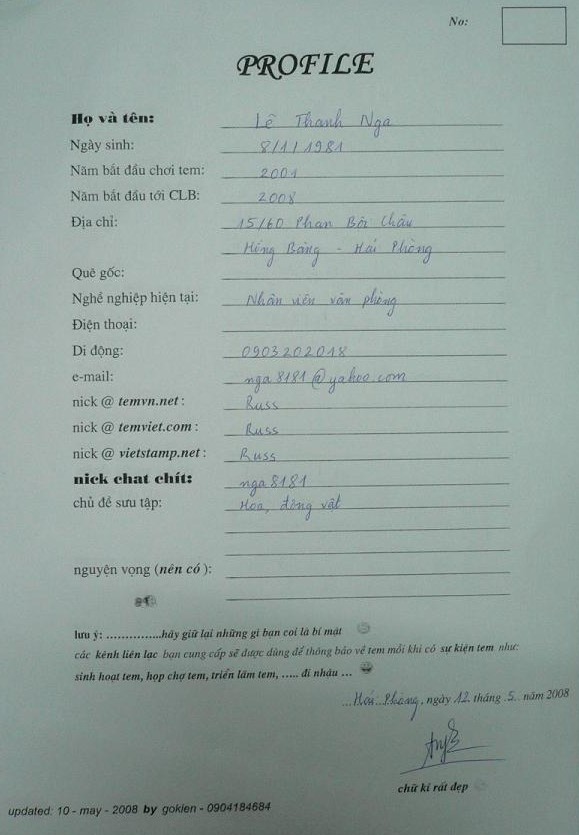 No:
PROFILE
Họ và tên: Lê Thanh Nga
Ngày sinh: 8/1/1981
Năm bắt đầu chơi tem: 2001
Năm bắt đầu tới CLB: 2008
Địa chỉ: 15/60 Phan Bội Châu
Hồng Bàng - Hải Phòng
Quê gốc:
Nghề nghiệp hiện tại: Nhân viên văn phòng
Điện thoại:
Di động: 0903202018
e-mail: nga8181@yahoo.com
nick @ temvn.net : Russ
nick @ temviet.com : Russ
nick @ vietstamp.net : Russ
nick chat chít: nga8181
chủ đề sưu tập: Hoa, động vật
nguyện vọng (nên có ):
lưu ý: …………...hãy giữ lại những gì bạn coi là bí mật
các kênh liên lạc bạn cung cấp sẽ được dùng để thông báo về tem mỗi khi có sự kiện tem như:
sinh hoạt tem, họp chợ tem, triển lãm tem, ….. đi nhậu …
...Hải Phòng, ngày 12 tháng .5. năm 2008
chữ kí rất đẹp
updated: 10 - may - 2008 by gokien - 0904184684